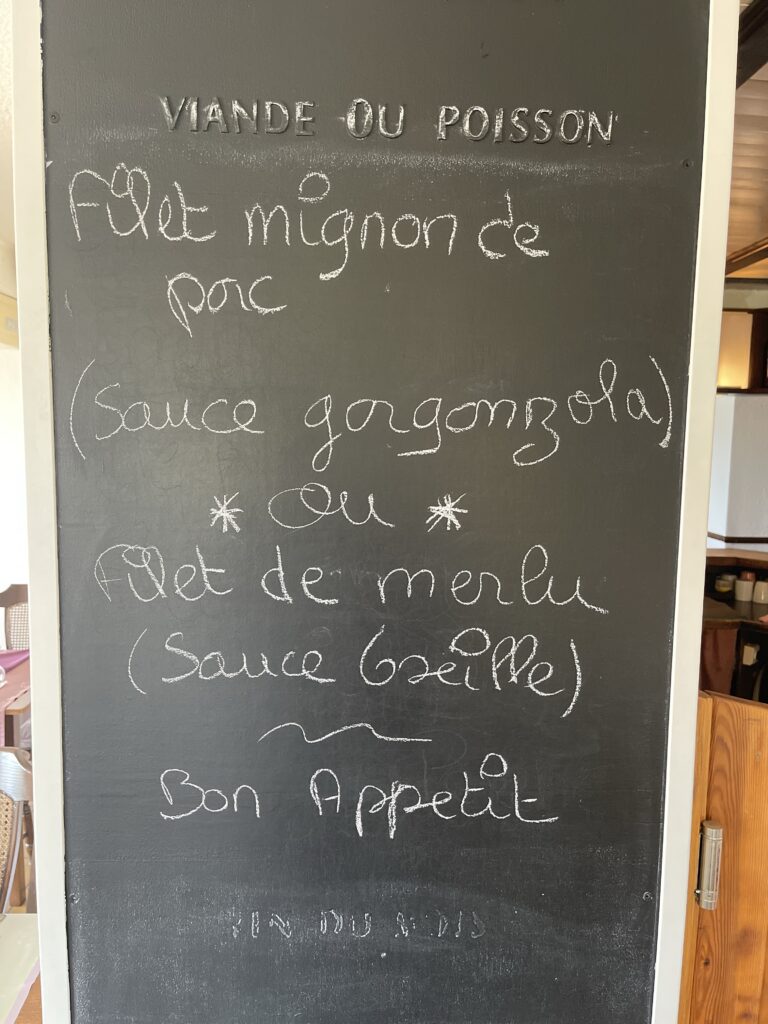 VIANDE OU POISSON
Filet mignon de
porc
(Sauce gorgonzola)
* Ou *
Filet de merlu
(Sauce Oseille)
Bon Appetit